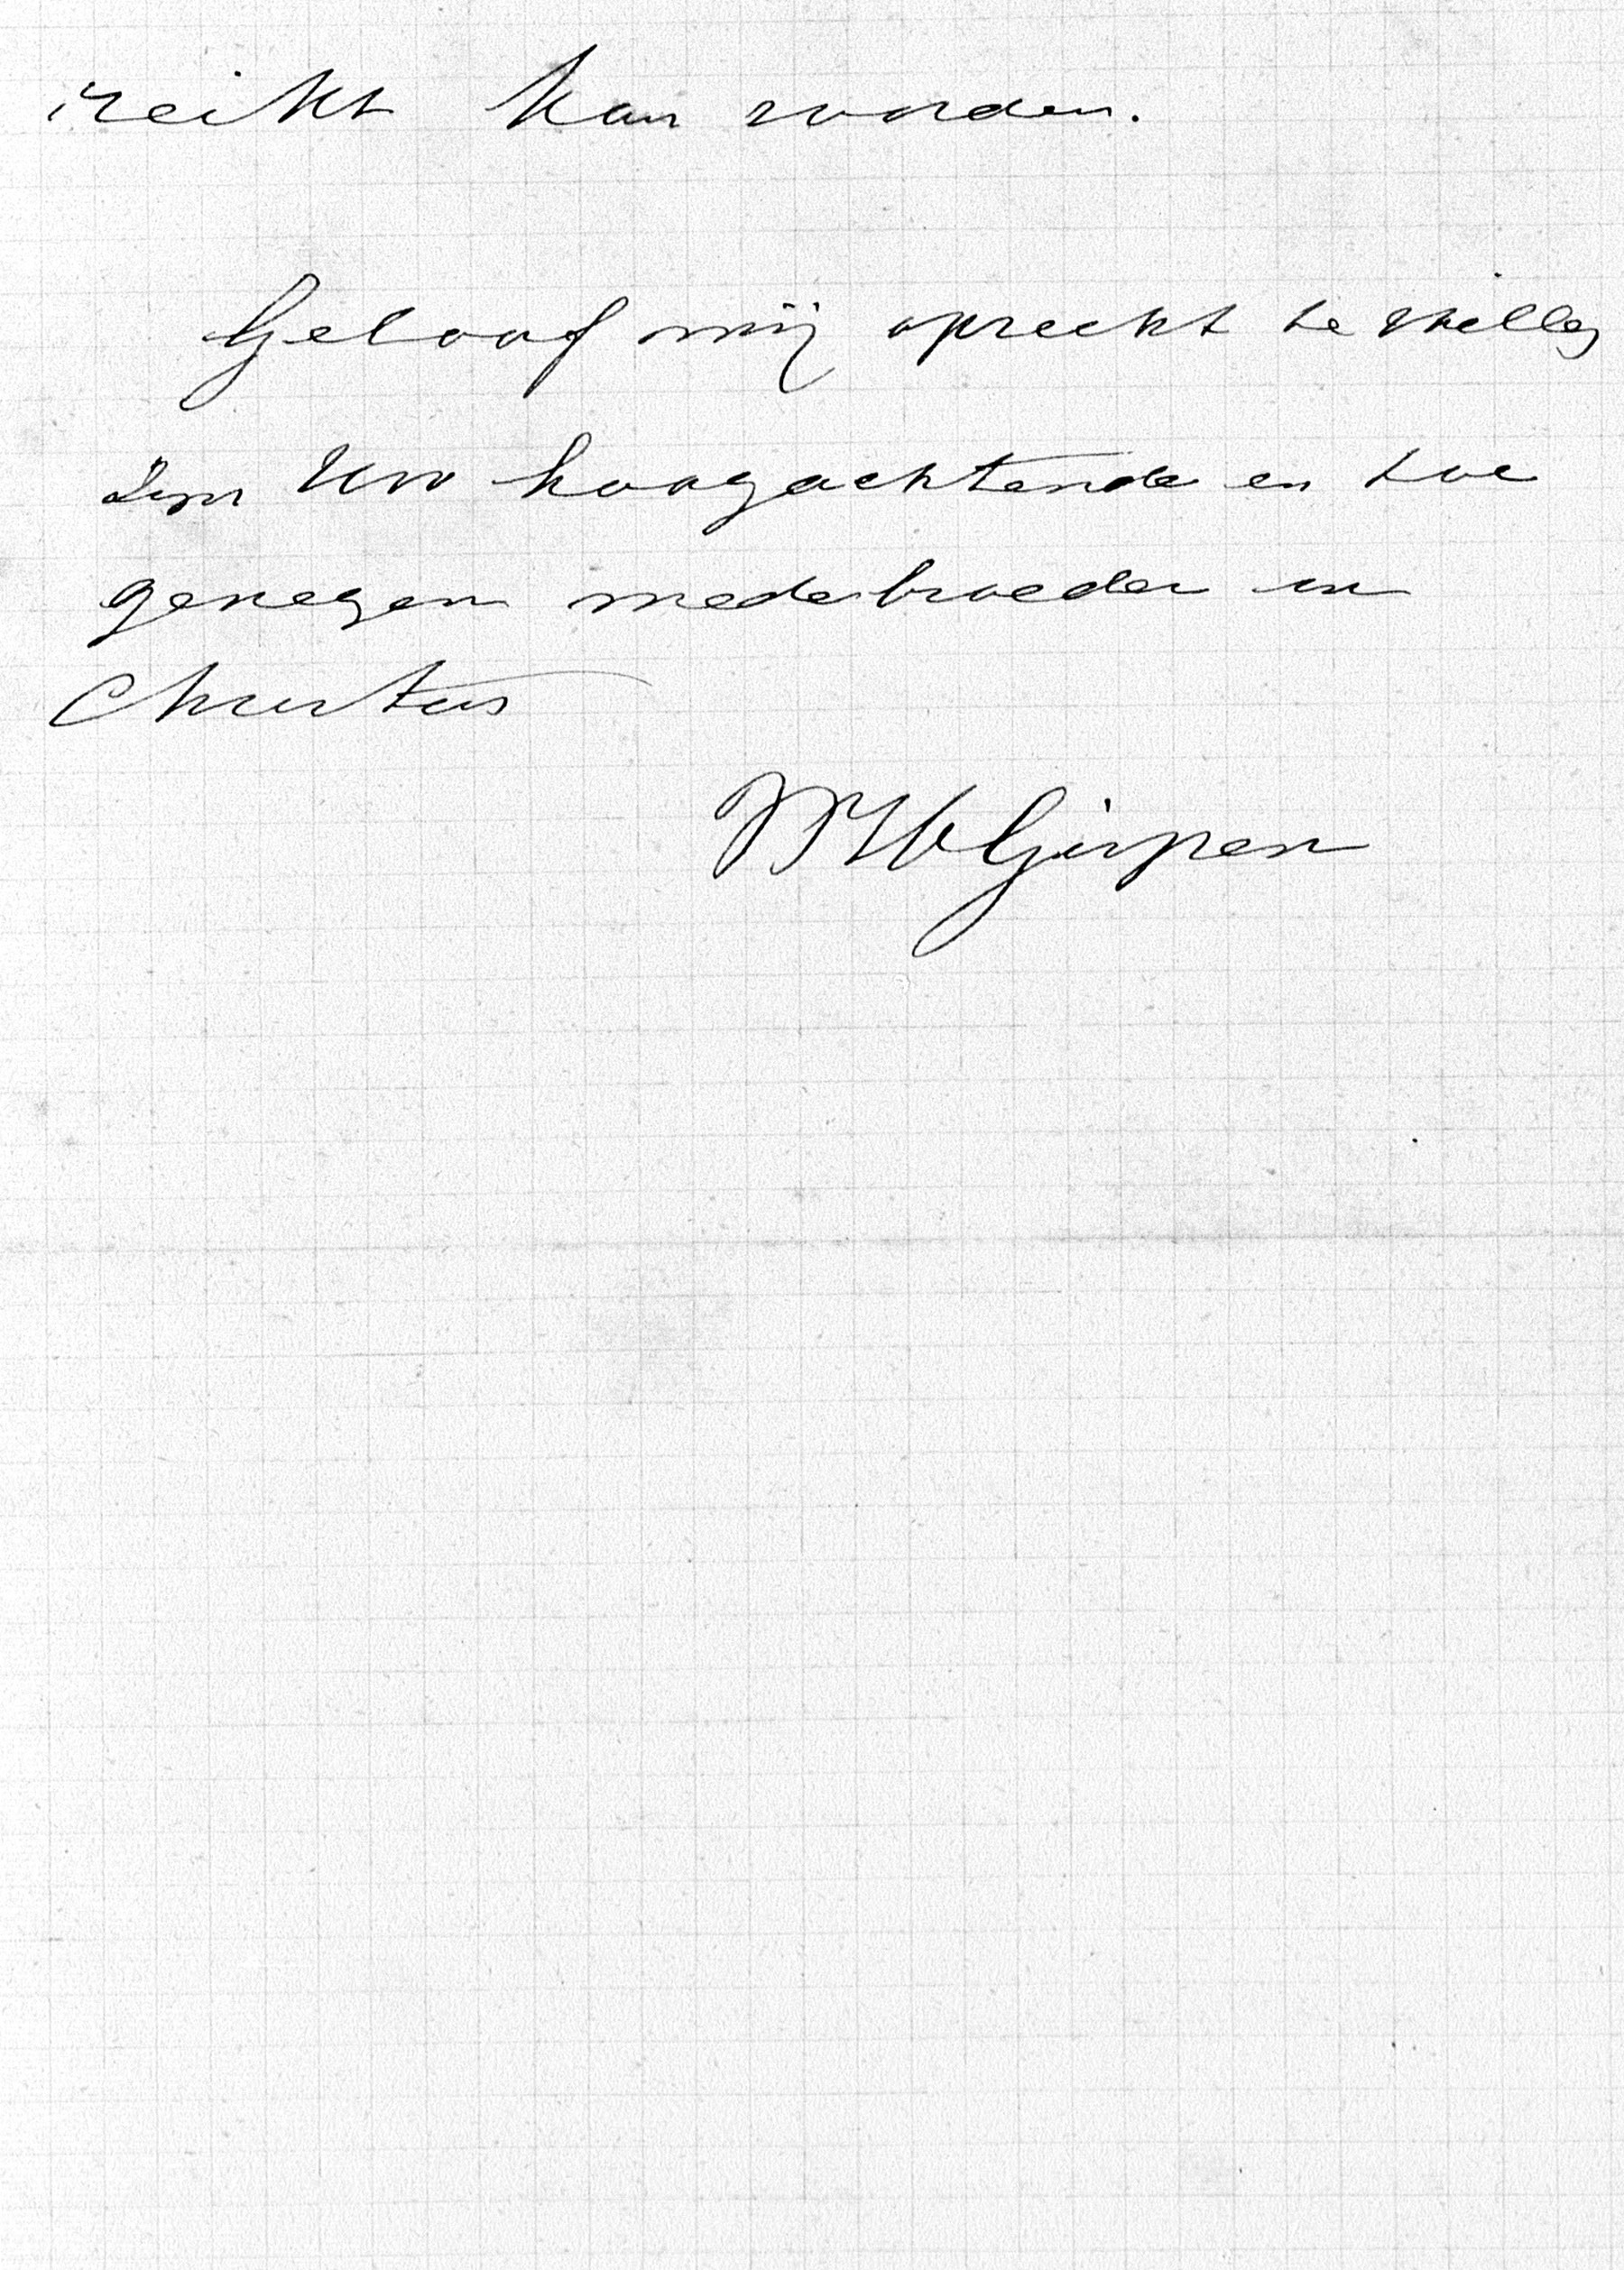 reikt kan worden.
Geloof mij oprecht te willen
zijn Uw hoogachtende en toe
genegen medebroeder in
Christus